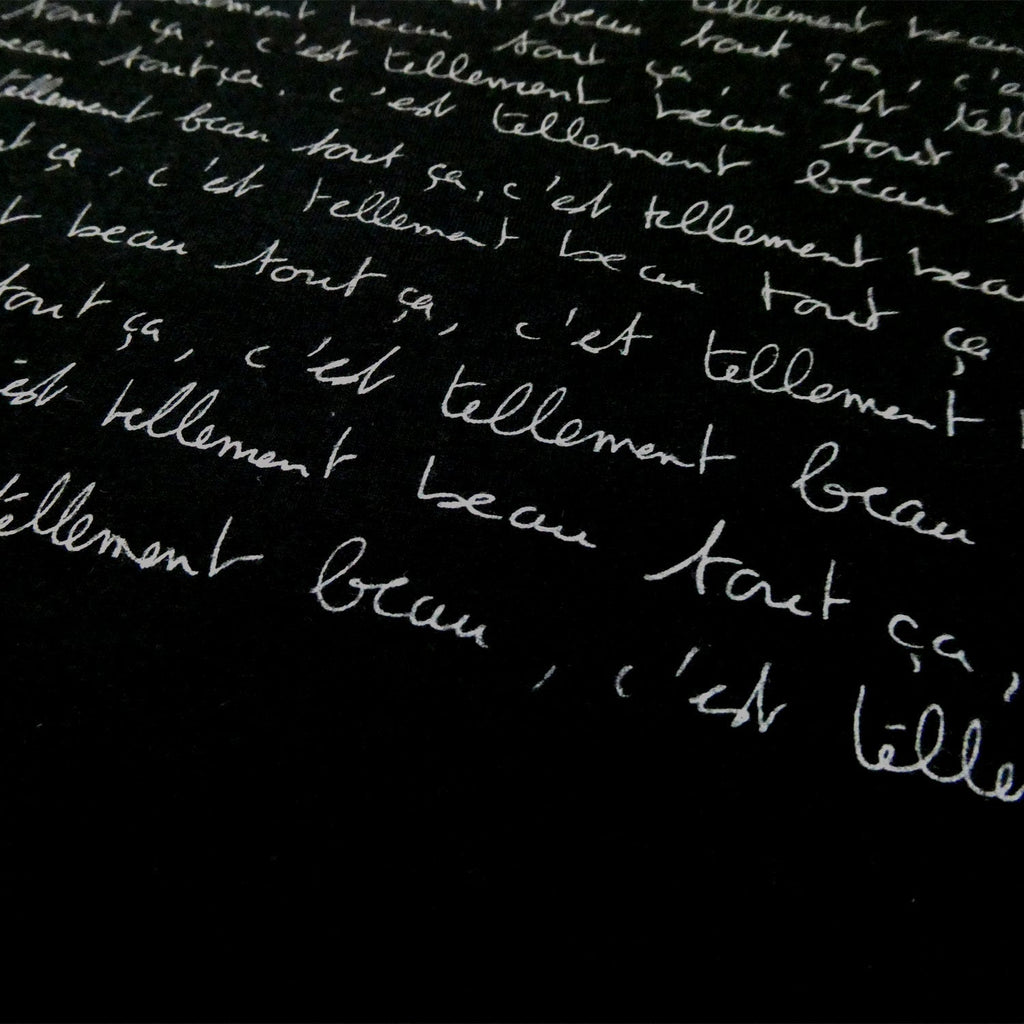 tellement beau tout ça, c'est tellement beau
tout ça, c'est tellement beau tout ça, c'est
beau tout ça, c'est tellement beau tout ça
tellement beau tout ça, c'est tellement beau
ça, c'est tellement beau tout ça
beau tout ça, c'est tellement
tout ça, c'est tellement beau
est tellement beau tout ça,
tellement beau, c'est